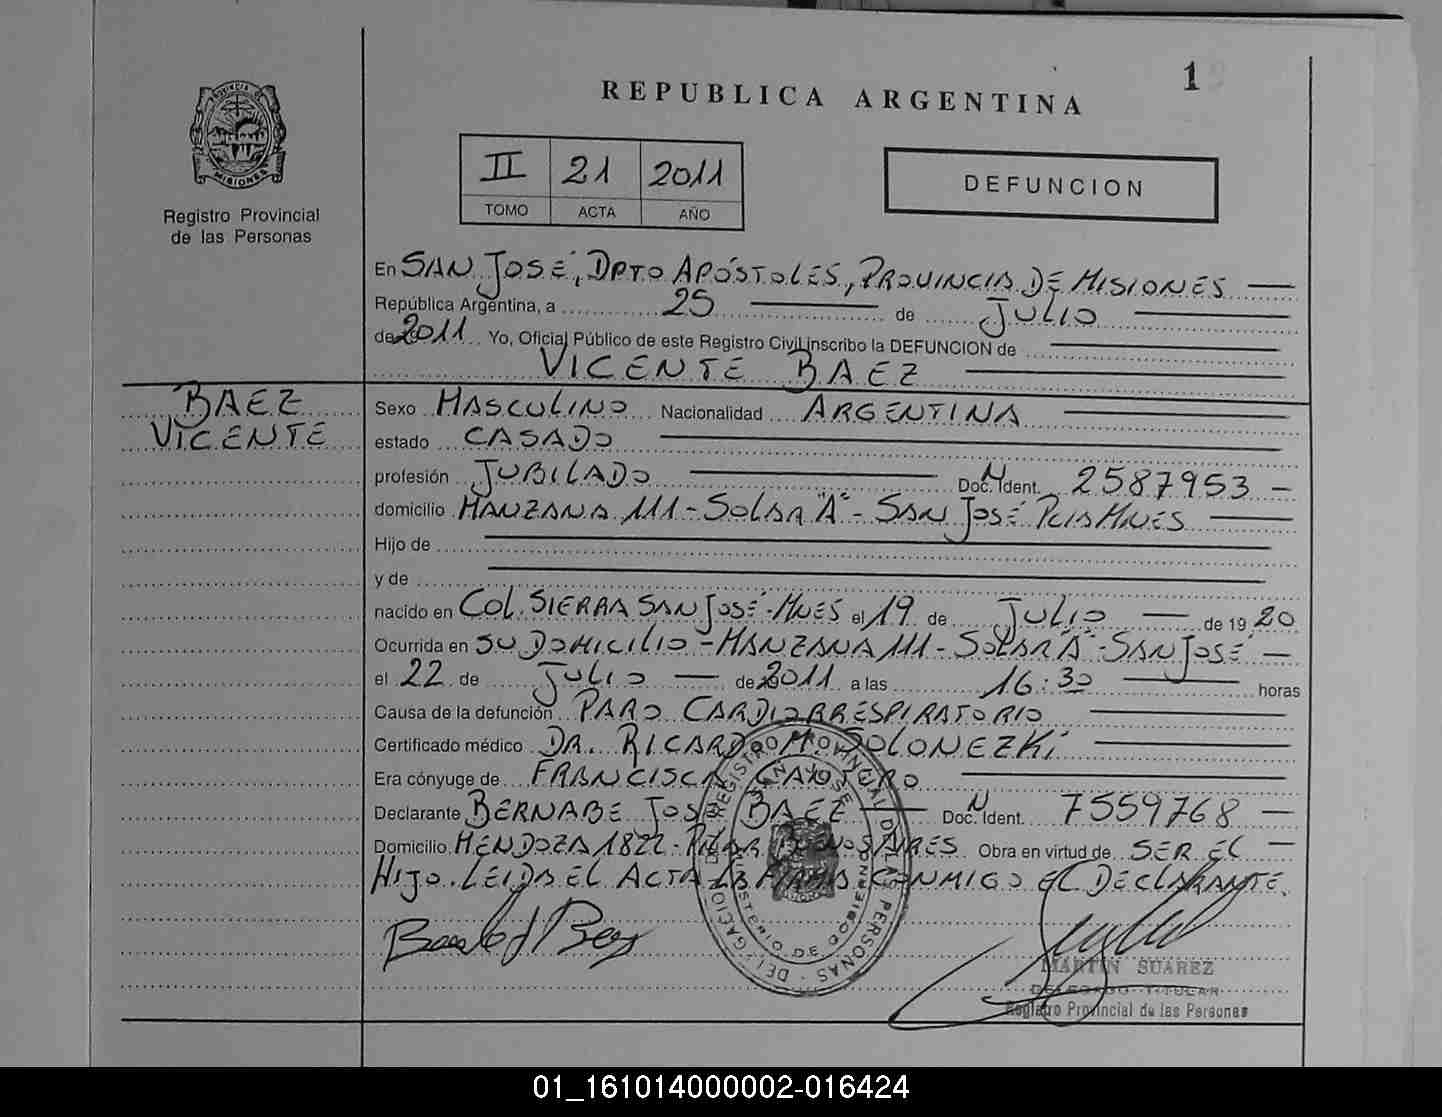 1
REPUBLICA ARGENTINA
PROVINCIA DE
MISIONES
Registro Provincial
de las Personas
II 21 2011
TOMO ACTA AÑO
DEFUNCION
En SAN JOSÉ, DPTO APÓSTOLES, PROVINCIA DE MISIONES
República Argentina, a 25 de JULIO
de 2011 Yo, Oficial Público de este Registro Civil inscribo la DEFUNCION de
VICENTE BAEZ
BAEZ
VICENTE
Sexo MASCULINO Nacionalidad ARGENTINA
estado CASADO
profesión JUBILADO Doc. Ident. N 2587953
domicilio MANZANA 111 - SOLAR "A" - SAN JOSÉ PCIA MNES
Hijo de
y de
nacido en COL. SIERRA SAN JOSÉ - MNES el 19 de JULIO de 1920
Ocurrida en SU DOMICILIO - MANZANA 111 - SOLAR "A" - SAN JOSÉ
el 22 de JULIO de 2011 a las 16:30 horas
Causa de la defunción PARO CARDIORRESPIRATORIO
Certificado médico DR. RICARDO M. SOLONEZKI
Era cónyuge de FRANCISCA
Declarante BERNABE JOSE BAEZ Doc. Ident. N 7559768
Domicilio MENDOZA 1822 - PILAR BUENOS AIRES Obra en virtud de SER EL
HIJO. LEIDA EL ACTA LA FIRMA CONMIGO EL DECLARANTE.
REGISTRO PROVINCIAL DE LAS PERSONAS - DELEGACION
SAN JOSE
MINISTERIO DE GOBIERNO
MARTIN SUAREZ
DELEGADO TITULAR
Registro Provincial de las Personas
01_161014000002-016424